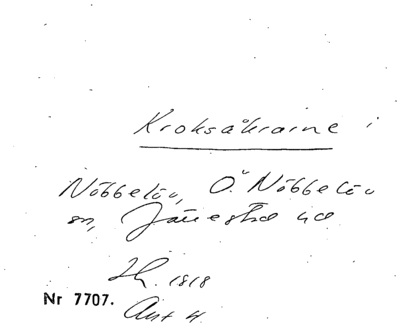 Kroksåkrarne i
Nöbbelöv, Ö. Nöbbelöv
sn, Järrestad hd
1818
Nr 7707.